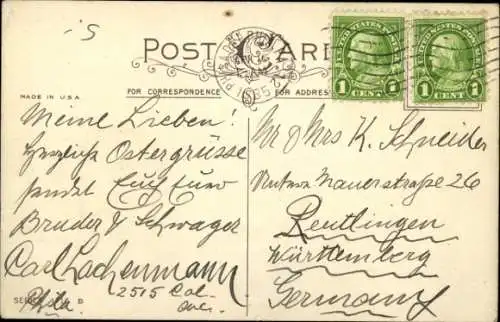 .5
POST CARD
MADE IN U.S.A.
FOR CORRESPONDENCE
FOR ADDRESS
UNITED STATES POSTAGE
1 CENT 1
UNITED STATES POSTAGE
1 CENT 1
Meine Lieben!
Herzliche Ostergrüsse
sendet Euch Euer
Bruder & Schwager
Carl Lachenmann
2515 Col. Ave.
Phila.
SERIES B
Mr & Mrs K. Schneider
Untere Mauerstraße 26
Reutlingen
Württemberg
Germany